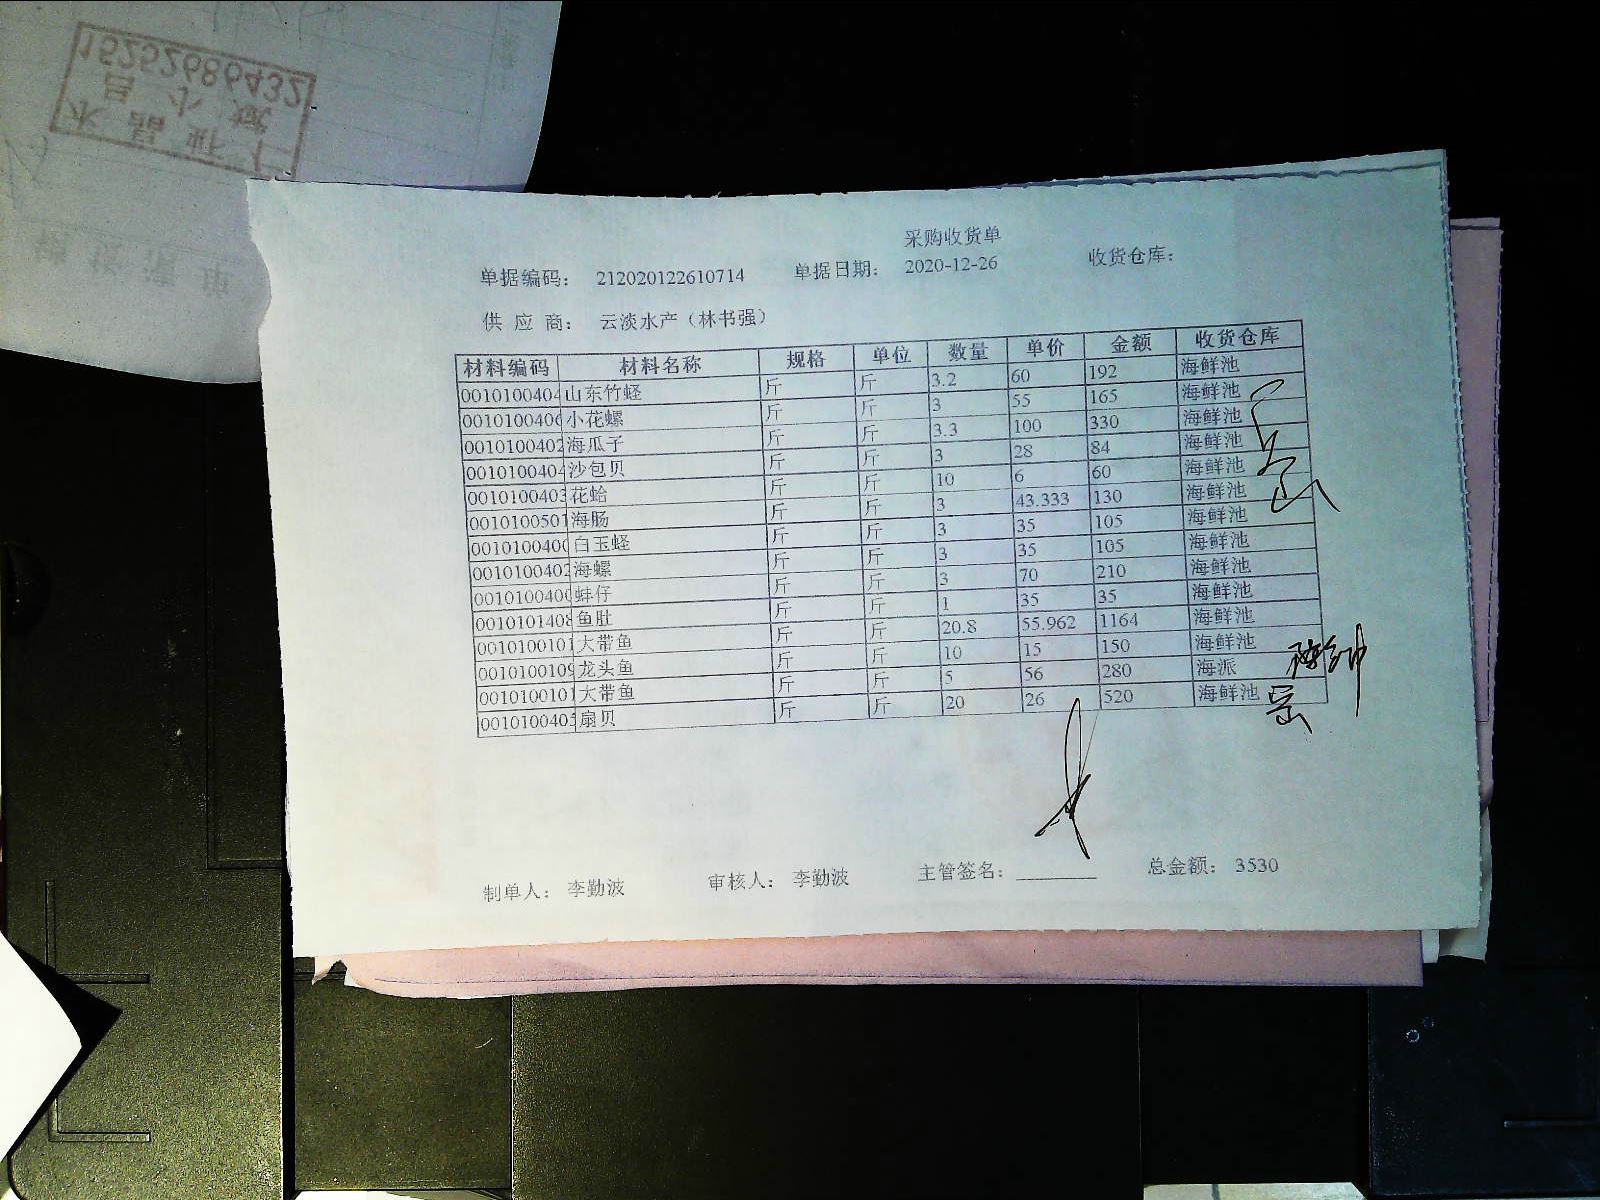 采购收货单
单据编码： 212020122610714 单据日期： 2020-12-26 收货仓库：
供 应 商： 云淡水产（林书强）
材料编码 材料名称 规格 单位 数量 单价 金额 收货仓库
0010100404 山东竹蛏 斤 斤 3.2 60 192 海鲜池
001010040 小花螺 斤 斤 3 55 165 海鲜池
0010100402 海瓜子 斤 斤 3.3 100 330 海鲜池
0010100404 沙包贝 斤 斤 3 28 84 海鲜池
0010100403 花蛤 斤 斤 10 6 60 海鲜池
0010100501 海肠 斤 斤 3 43.333 130 海鲜池
001010040 白玉蛏 斤 斤 3 35 105 海鲜池
0010100402 海螺 斤 斤 3 35 105 海鲜池
001010040 蛏仔 斤 斤 3 70 210 海鲜池
0010101408 鱼肚 斤 斤 1 35 35 海鲜池
0010100101 大带鱼 斤 斤 20.8 55.962 1164 海鲜池
0010100109 龙头鱼 斤 斤 10 15 150 海鲜池
0010100101 大带鱼 斤 斤 5 56 280 海派
001010040 扇贝 斤 斤 20 26 520 海鲜池
制单人： 李勤波 审核人： 李勤波 主管签名： 总金额： 3530
15252686432